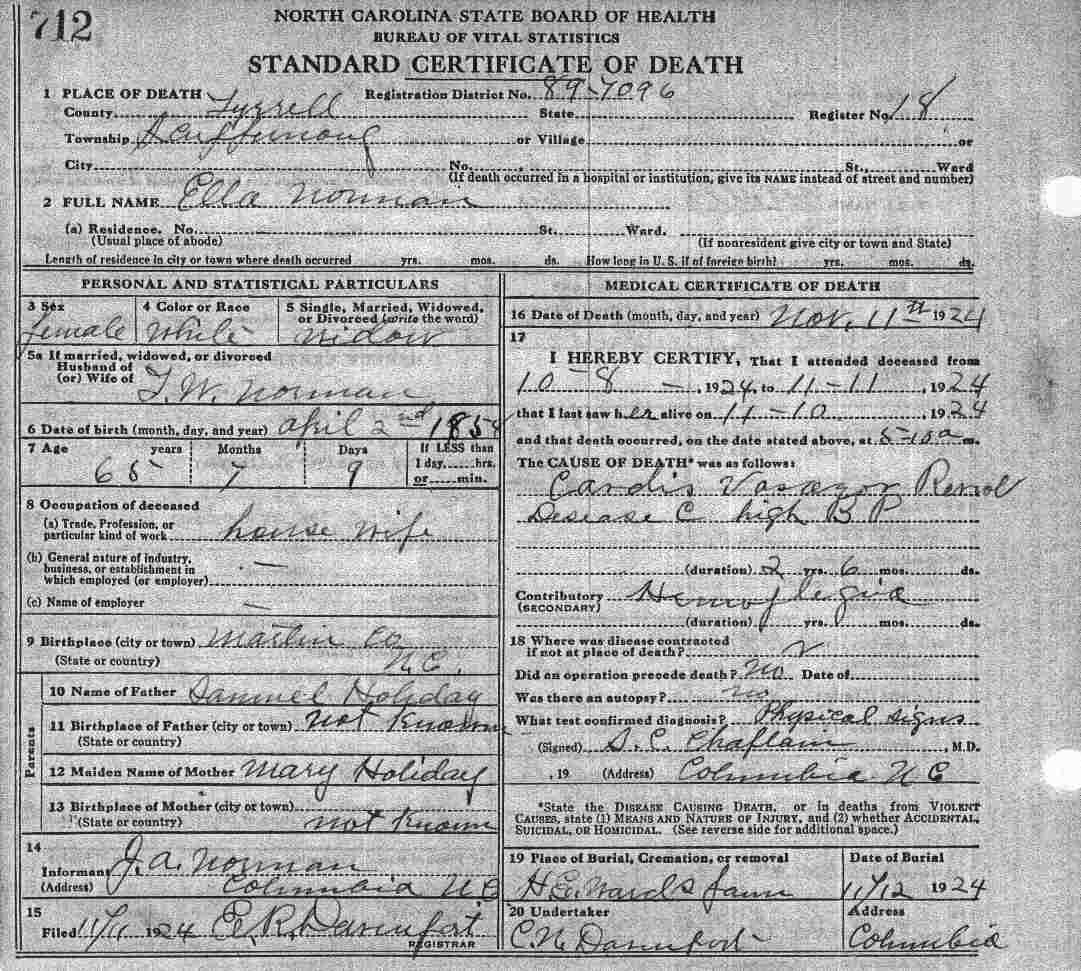 712
NORTH CAROLINA STATE BOARD OF HEALTH
BUREAU OF VITAL STATISTICS
STANDARD CERTIFICATE OF DEATH
1 PLACE OF DEATH Registration District No. 89-7096
County Tyrrell State Register No. 18
Township Scuppernong or Village or
City No. , St., Ward
(If death occurred in a hospital or institution, give its NAME instead of street and number)
2 FULL NAME Ella Norman
(a) Residence. No. St. Ward.
(Usual place of abode) (If nonresident give city or town and State)
Length of residence in city or town where death occurred yrs. mos. ds. How long in U. S. if of foreign birth? yrs. mos. ds.
PERSONAL AND STATISTICAL PARTICULARS
3 Sex 4 Color or Race 5 Single, Married, Widowed, or Divorced (write the word)
female White widow
5a If married, widowed, or divorced
Husband of
(or) Wife of T. W. Norman
6 Date of birth (month, day, and year) april 2nd
7 Age years Months Days If LESS than
1 day, hrs.
65 7 9 or min.
8 Occupation of deceased
(a) Trade, Profession, or
particular kind of work house wife
(b) General nature of industry,
business, or establishment in
which employed (or employer) —
(c) Name of employer —
9 Birthplace (city or town) Martin Co
(State or country) N.C.
Parents
10 Name of Father Samuel Holiday
11 Birthplace of Father (city or town) not known
(State or country)
12 Maiden Name of Mother Mary Holiday
13 Birthplace of Mother (city or town)
(State or country) not known
14
Informant J. A. Norman
(Address) Columbia N C
15
Filed 11/11 1924 E. R. Davenport
REGISTRAR
MEDICAL CERTIFICATE OF DEATH
16 Date of Death (month, day, and year) Nov. 11th 1924
17
I HEREBY CERTIFY, That I attended deceased from
10-8-, 1924, to 11-11, 1924
that I last saw her alive on 11-10, 1924
and that death occurred, on the date stated above, at 5-10 a m.
The CAUSE OF DEATH* was as follows:
Cardio Renal
Desease C high B P
(duration) 2 yrs. 6 mos. ds.
Contributory
(SECONDARY)
(duration) yrs. mos. ds.
18 Where was disease contracted
if not at place of death?
Did an operation precede death? No Date of
Was there an autopsy? no
What test confirmed diagnosis? Physical signs
(Signed) , M.D.
, 19 (Address) Columbia N C
*State the DISEASE CAUSING DEATH, or in deaths from VIOLENT
CAUSES, state (1) MEANS AND NATURE OF INJURY, and (2) whether ACCIDENTAL,
SUICIDAL, OR HOMICIDAL. (See reverse side for additional space.)
19 Place of Burial, Cremation, or removal Date of Burial
11/12 1924
20 Undertaker Address
C. N. Davenport Columbia